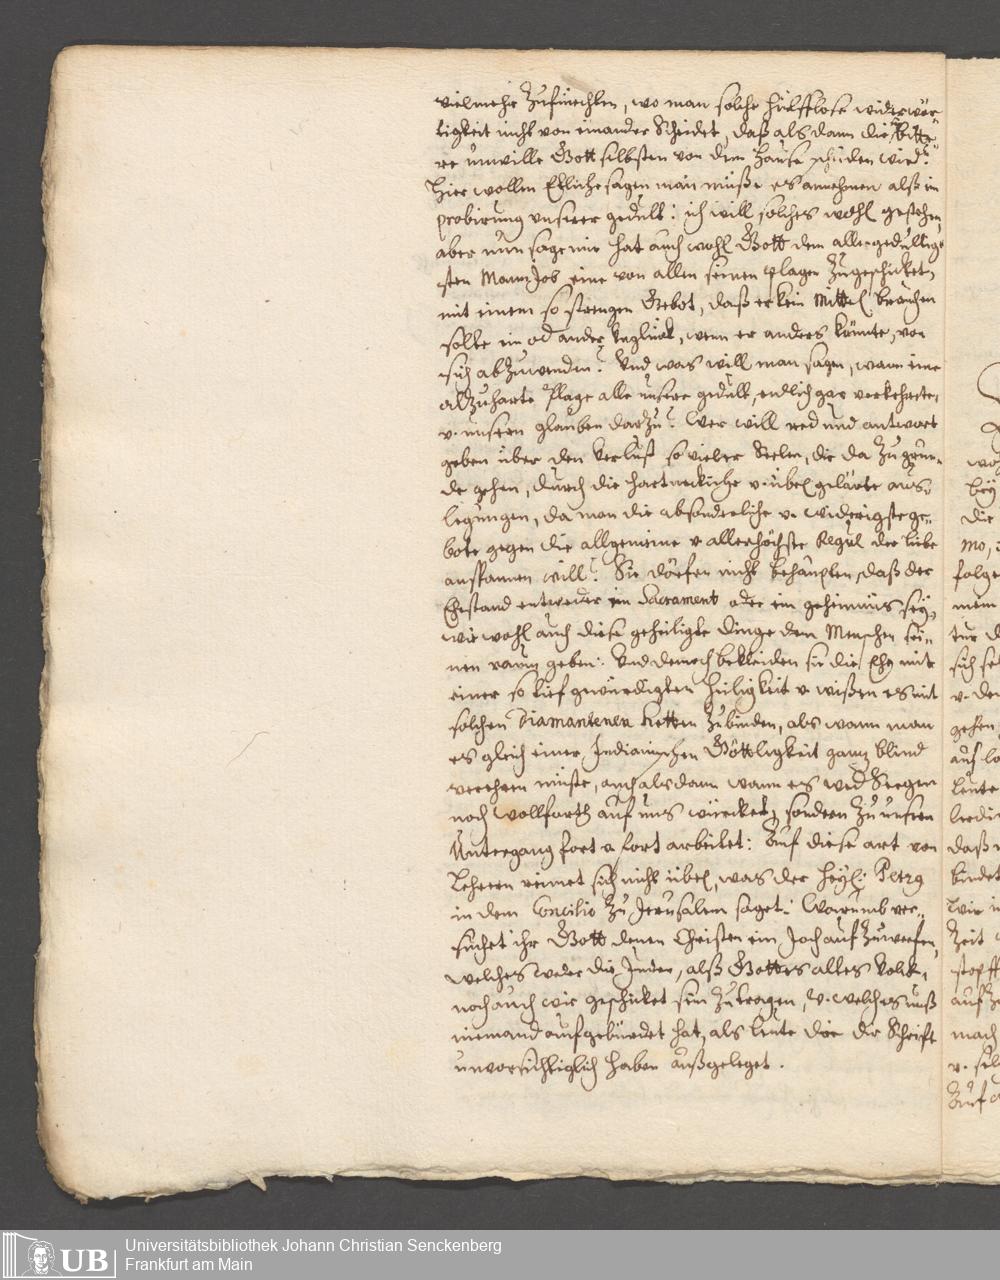 vielmehr zufürchten, wo man solche hülfflose widerwer-
tigkeit nicht von einander scheidet, daß als dann die bitte-
re unwille Gott selbsten von dem hause scheiden wird.
Hier wollen Etliche sagen man müße es annehmen alß ein
probirung unserer gedult: ich will solches wohl gestehen,
aber nun sage mir hat auch wohl Gott dem allergedultig-
sten Mann Job eine von allen seinen plagen zugeschicket,
mit einem so strengen Gebot, daß er kein Mittel brauchen
solte ein od ander Unglück, wenn er anders könnte, von
sich abzuwenden? Und was will man sagen, wann eine
alzuharte Plage alle unsere gedult, endlich gar verkehrete,
v. unsern glauben darzu? Wer will red und antwort
geben über den Verlust so vieler Seelen, die da zu grun-
de gehen, durch die hartneckiche v. übel gelärte aus-
legungen, da man die absonderliche v. widerigste ge-
bote gegen die allgemeine v. allerhöchste Regul der liebe
anspannen will? Sie dörfen nicht behaupten, daß der
Ehestand entweder ein Sacrament oder ein geheimnüs sey,
wie wohl auch diese geheiligte Dinge den Menschen sei-
nen raum geben: Und dennoch bekleiden sie die Ehe mit
einer so tief gewürdigten heiligkeit v. wißen es mit
solchen Diamantenen Ketten zubinden, als wann man
es gleich einer Indianischen Göttligkeit ganz blind
verehren müste, auch alsdann wann es wed Seegen
noch Wollfarth auf uns würcket, sondern zu unsern
Untergang fort v. fort arbeitet: Auf diese art von
Lehrern reimet sich nicht übel, was der Heyl: Petrg
in dem Concilio zu Jerusalem saget: Warumb ver-
suchet ihr Gott denen Christen ein Joch auf zuwerfen,
welches weder die Juden, alß Gottes altes Volck,
noch auch wir geschicket sein zutragen, v. welches uns
niemand aufgebürdet hat, als leute die die Schrift
unvorsichtiglich haben außgeleget.
wo
bey
die
mo,
folge
nem
tur d
sich se
v. de
gehen
auf la
leute
ledi
daß
bindet
wir
Zeit
stopff
auf
mach
v. sel
Auf
UB
Universitätsbibliothek Johann Christian Senckenberg
Frankfurt am Main